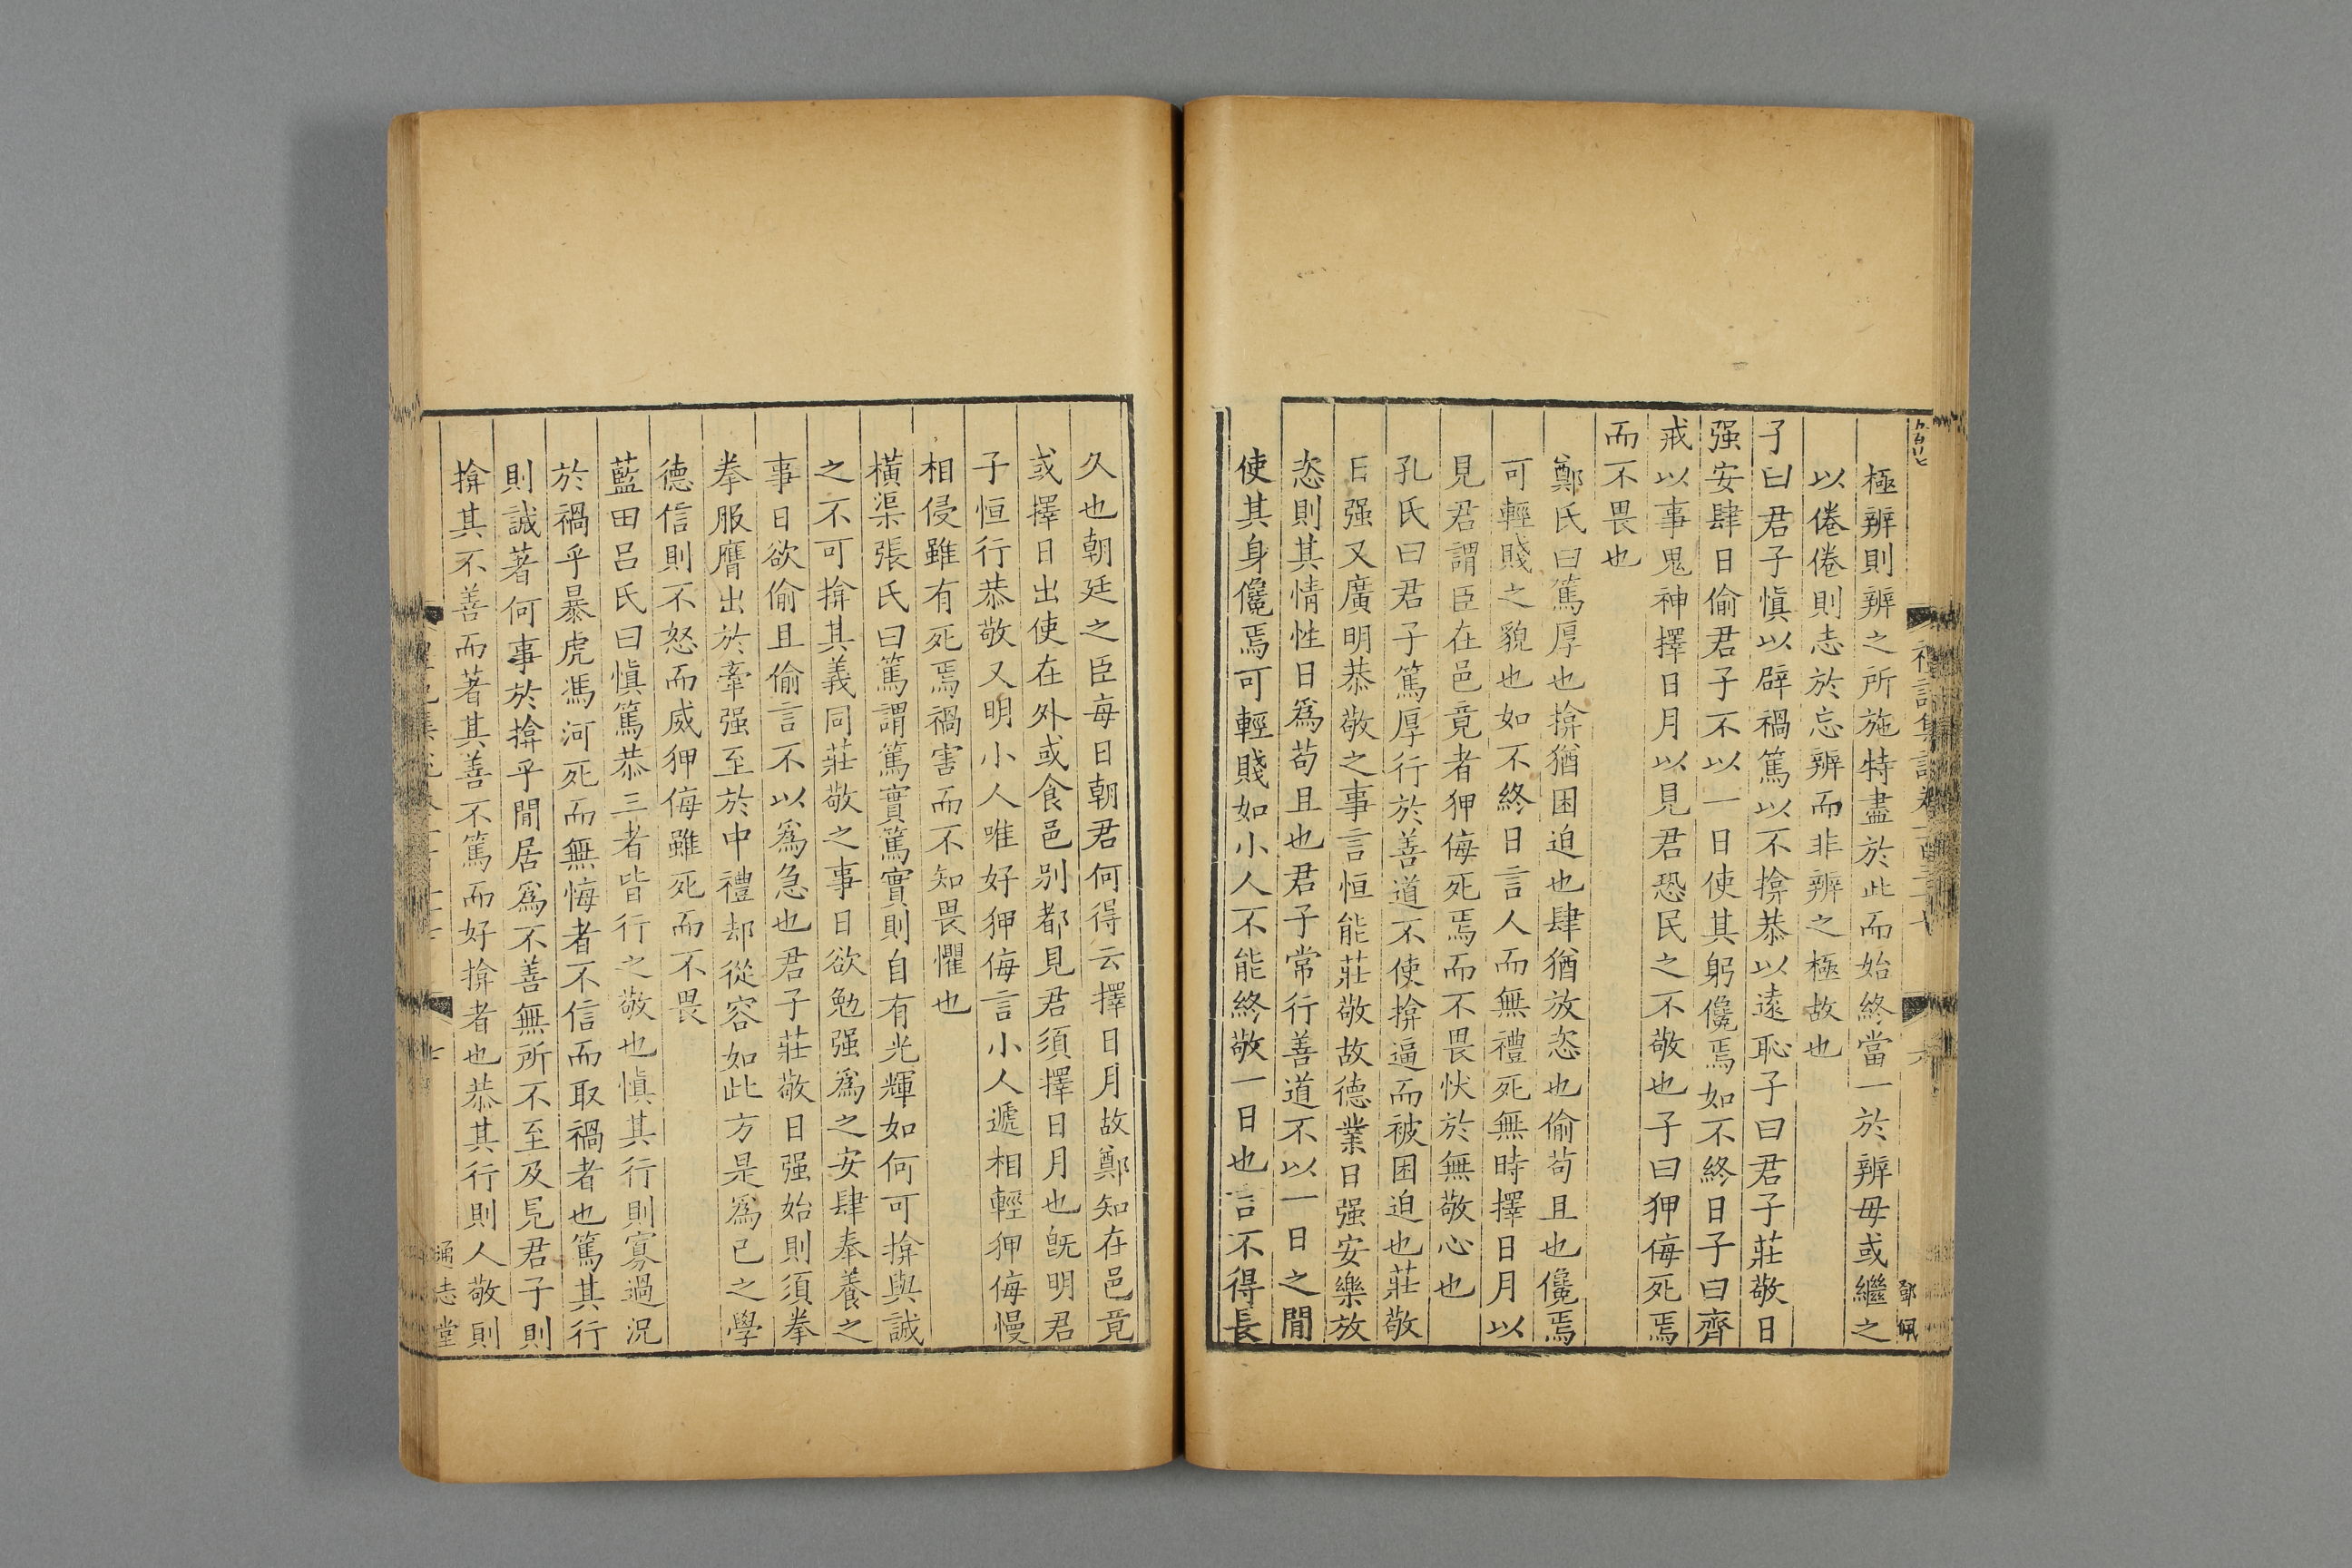 極辨則辨之所施特盡於此而始終當一於辨毋或繼之
以倦倦則志於忘辨而非辨之極故也
子曰君子愼以辟禍篤以不揜恭以遠恥子曰君子莊敬日
强安肆日偷君子不以一日使其躬儳焉如不終日子曰齊
戒以事鬼神擇日月以見君恐民之不敬也子曰狎侮死焉
而不畏也
鄭氏曰篤厚也揜猶困迫也肆猶放恣也偷苟且也儳焉
可輕賤之貌也如不終日言人而無禮死無時擇日月以
見君謂臣在邑竟者狎侮死焉而不畏忕於無敬心也
孔氏曰君子篤厚行於善道不使揜逼而被困迫也莊敬
日强又廣明恭敬之事言恒能莊敬故德業日强安樂放
恣則其情性日爲苟且也君子常行善道不以一日之閒
使其身儳焉可輕賤如小人不能終敬一日也言不得長
鄧珮
久也朝廷之臣每日朝君何得云擇日月故鄭知在邑竟
或擇日出使在外或食邑别都見君須擇日月也旣明君
子恒行恭敬又明小人唯好狎侮言小人遞相輕狎侮慢
相侵雖有死焉禍害而不知畏懼也
橫渠張氏曰篤謂篤實篤實則自有光輝如何可揜與誠
之不可揜其義同莊敬之事日欲勉强爲之安肆奉養之
事日欲偷且偷言不以爲急也君子莊敬日强始則須拳
拳服膺出於牽强至於中禮却從容如此方是爲己之學
德信則不怒而威狎侮雖死而不畏
藍田呂氏曰愼篤恭三者皆行之敬也愼其行則寡過況
於禍乎暴虎馮河死而無悔者不信而取禍者也篤其行
則誠著何事於揜乎閒居爲不善無所不至及見君子則
揜其不善而著其善不篤而好揜者也恭其行則人敬則
通志堂